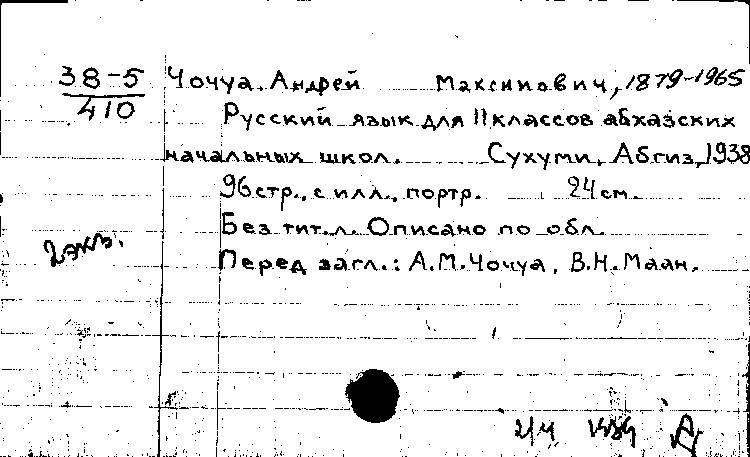 38-5 Чочуа, Андрей Максимович, 1879-1965
410
Русский язык для II классов абхазских
начальных школ. Сухуми, Абгиз, 1938
96 стр., с илл., портр. 24 см.
Без тит. л. Описано по обл.
2 экз.
Перед загл.: А.М.Чочуа, В.Н.Маан.